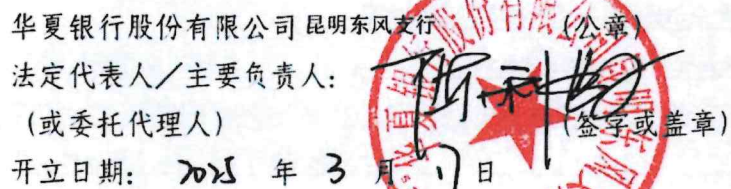 华夏银行股份有限公司昆明东风支行 (公章)
法定代表人／主要负责人：
(或委托代理人) (签字或盖章)
开立日期： 2025 年 3 月 17 日